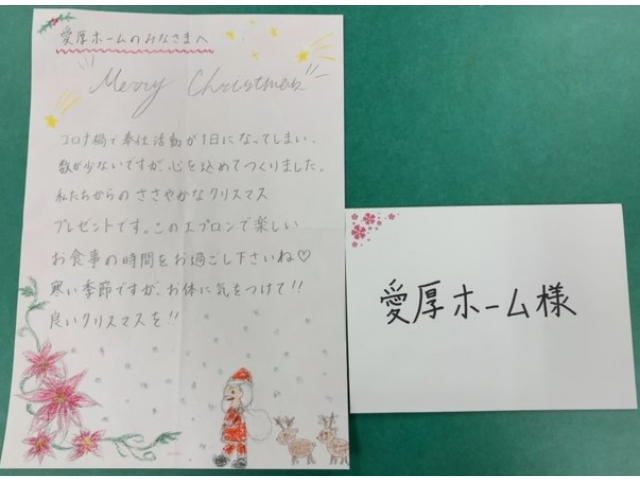 愛厚ホームのみなさまへ
Merry Christmas
コロナ禍で奉仕活動が1日になってしまい、
数が少ないですが、心を込めてつくりました。
私たちからのささやかなクリスマス
プレゼントです。このエプロンで楽しい
お食事の時間をお過ごし下さいね♡
寒い季節ですが、お体に気をつけて!!
良いクリスマスを!!
愛厚ホーム様